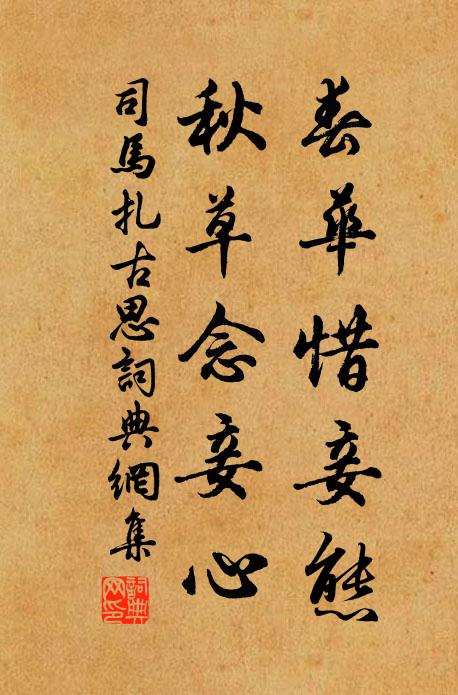 春華惜妾態
秋草念妾心
司馬扎古思詞典網集
詞典网印